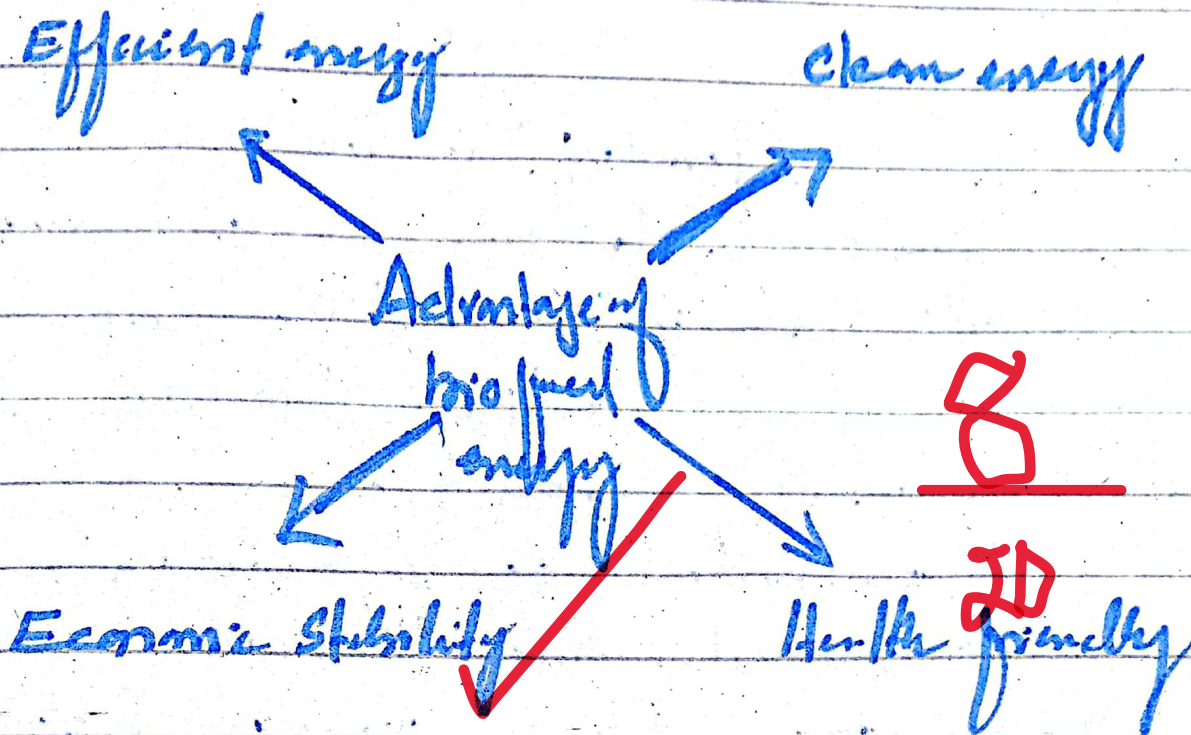 Efficient energy
Clean energy
Advantage of
bio fuel
energy
8
20
Economic Stability
Health friendly